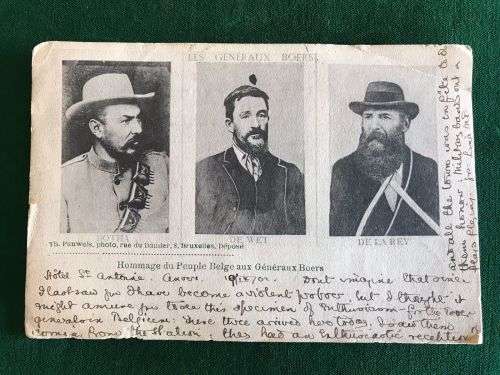 LES GÉNÉRAUX BOERS
BOTHA
DE WET
DE LA REY
Th. Pauwels, photo, rue du Damier, 8, Bruxelles, Déposé
Hommage du Peuple Belge aux Généraux Boers
Hôtel St Antoine. Anvers Don't imagine that since
I last saw you I have become a violent proboer, but I thought it
might amuse you to see this specimen of enthusiasm for the Boer
generals in Belgium. These three arrived here today, I saw them
coming from the station, they had an enthusiastic reception
and all the town was en fête to do
them honour, Military bands out &
flags flying.